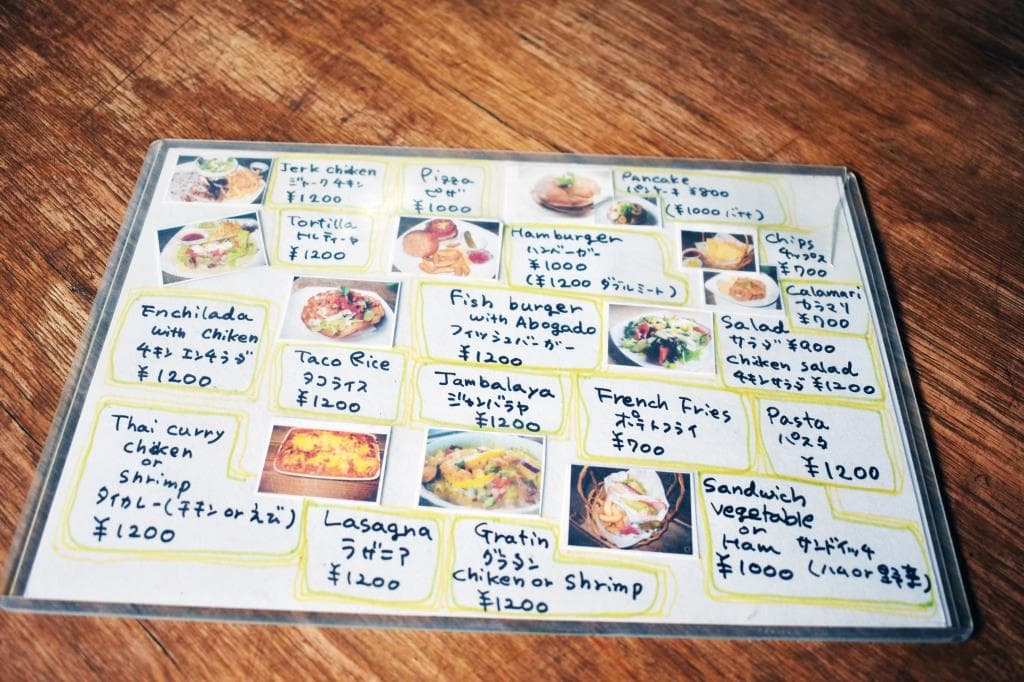 Jerk chiken
ジャークチキン
¥1200
Pizza
ピザ
¥1000
Pancake
パンケーキ ¥800
(¥1000 バナナ)
Tortilla
トルティーヤ
¥1200
Hamburger
ハンバーガー
¥1000
(¥1200 ダブルミート)
Chips
チップス
¥700
Calamari
カラマリ
¥700
Enchilada
with Chiken
チキン エンチラダ
¥1200
Fish burger
with Abogado
フィッシュバーガー
¥1200
Salad
サラダ ¥900
chiken salad
チキンサラダ ¥1200
Taco Rice
タコライス
¥1200
Jambalaya
ジャンバラヤ
¥1200
French Fries
ポテトフライ
¥700
Pasta
パスタ
¥1200
Thai curry
chiken
or
shrimp
タイカレー(チキン or えび)
¥1200
Lasagna
ラザニア
¥1200
Gratin
グラタン
chiken or Shrimp
¥1200
Sandwich
vegetable
or
Ham サンドイッチ
¥1000 (ハム or 野菜)